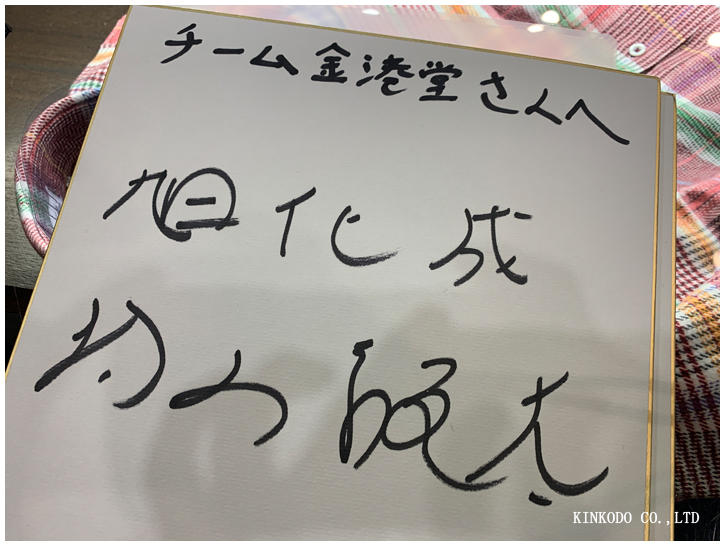 チーム金港堂さんへ
旭化成
村山謙太
KINKODO CO.,LTD